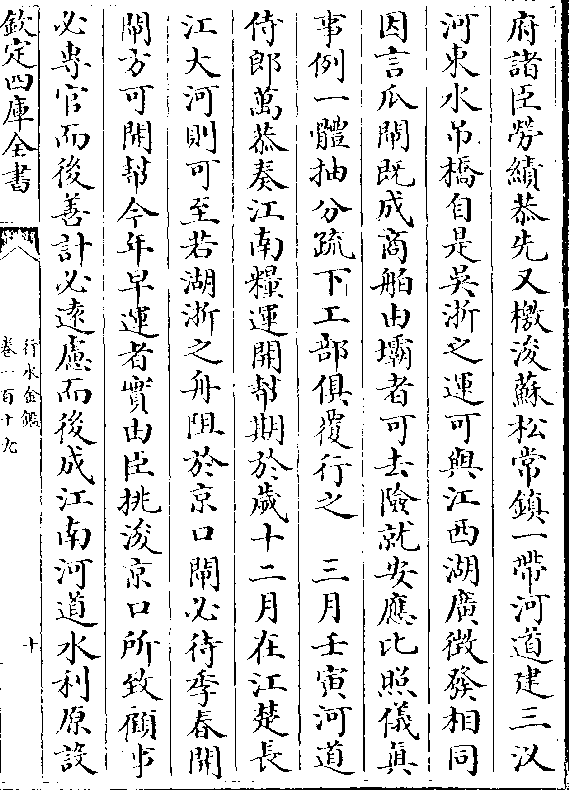 府諸臣勞績恭先又檄浚蘇松常鎮一帶河道建三汊
河東水吊橋自是吳浙之運可與江西湖廣徴發相同
因言瓜閘既成商舶由壩者可去險就安應比照儀真
事例一體抽分疏下工部俱覆行之　三月壬寅河道
侍郎萬恭奏江南糧運開幇期於歲十二月在江楚長
江大河則可至若湖浙之舟阻於京口閘必待季春開
閘方可開幇今年早運者實由臣挑浚京口所致顧事
必專官而後善計必遠慮而後成江南河道水利原設
欽定四庫全書
行水金鑑
卷一百十九
十